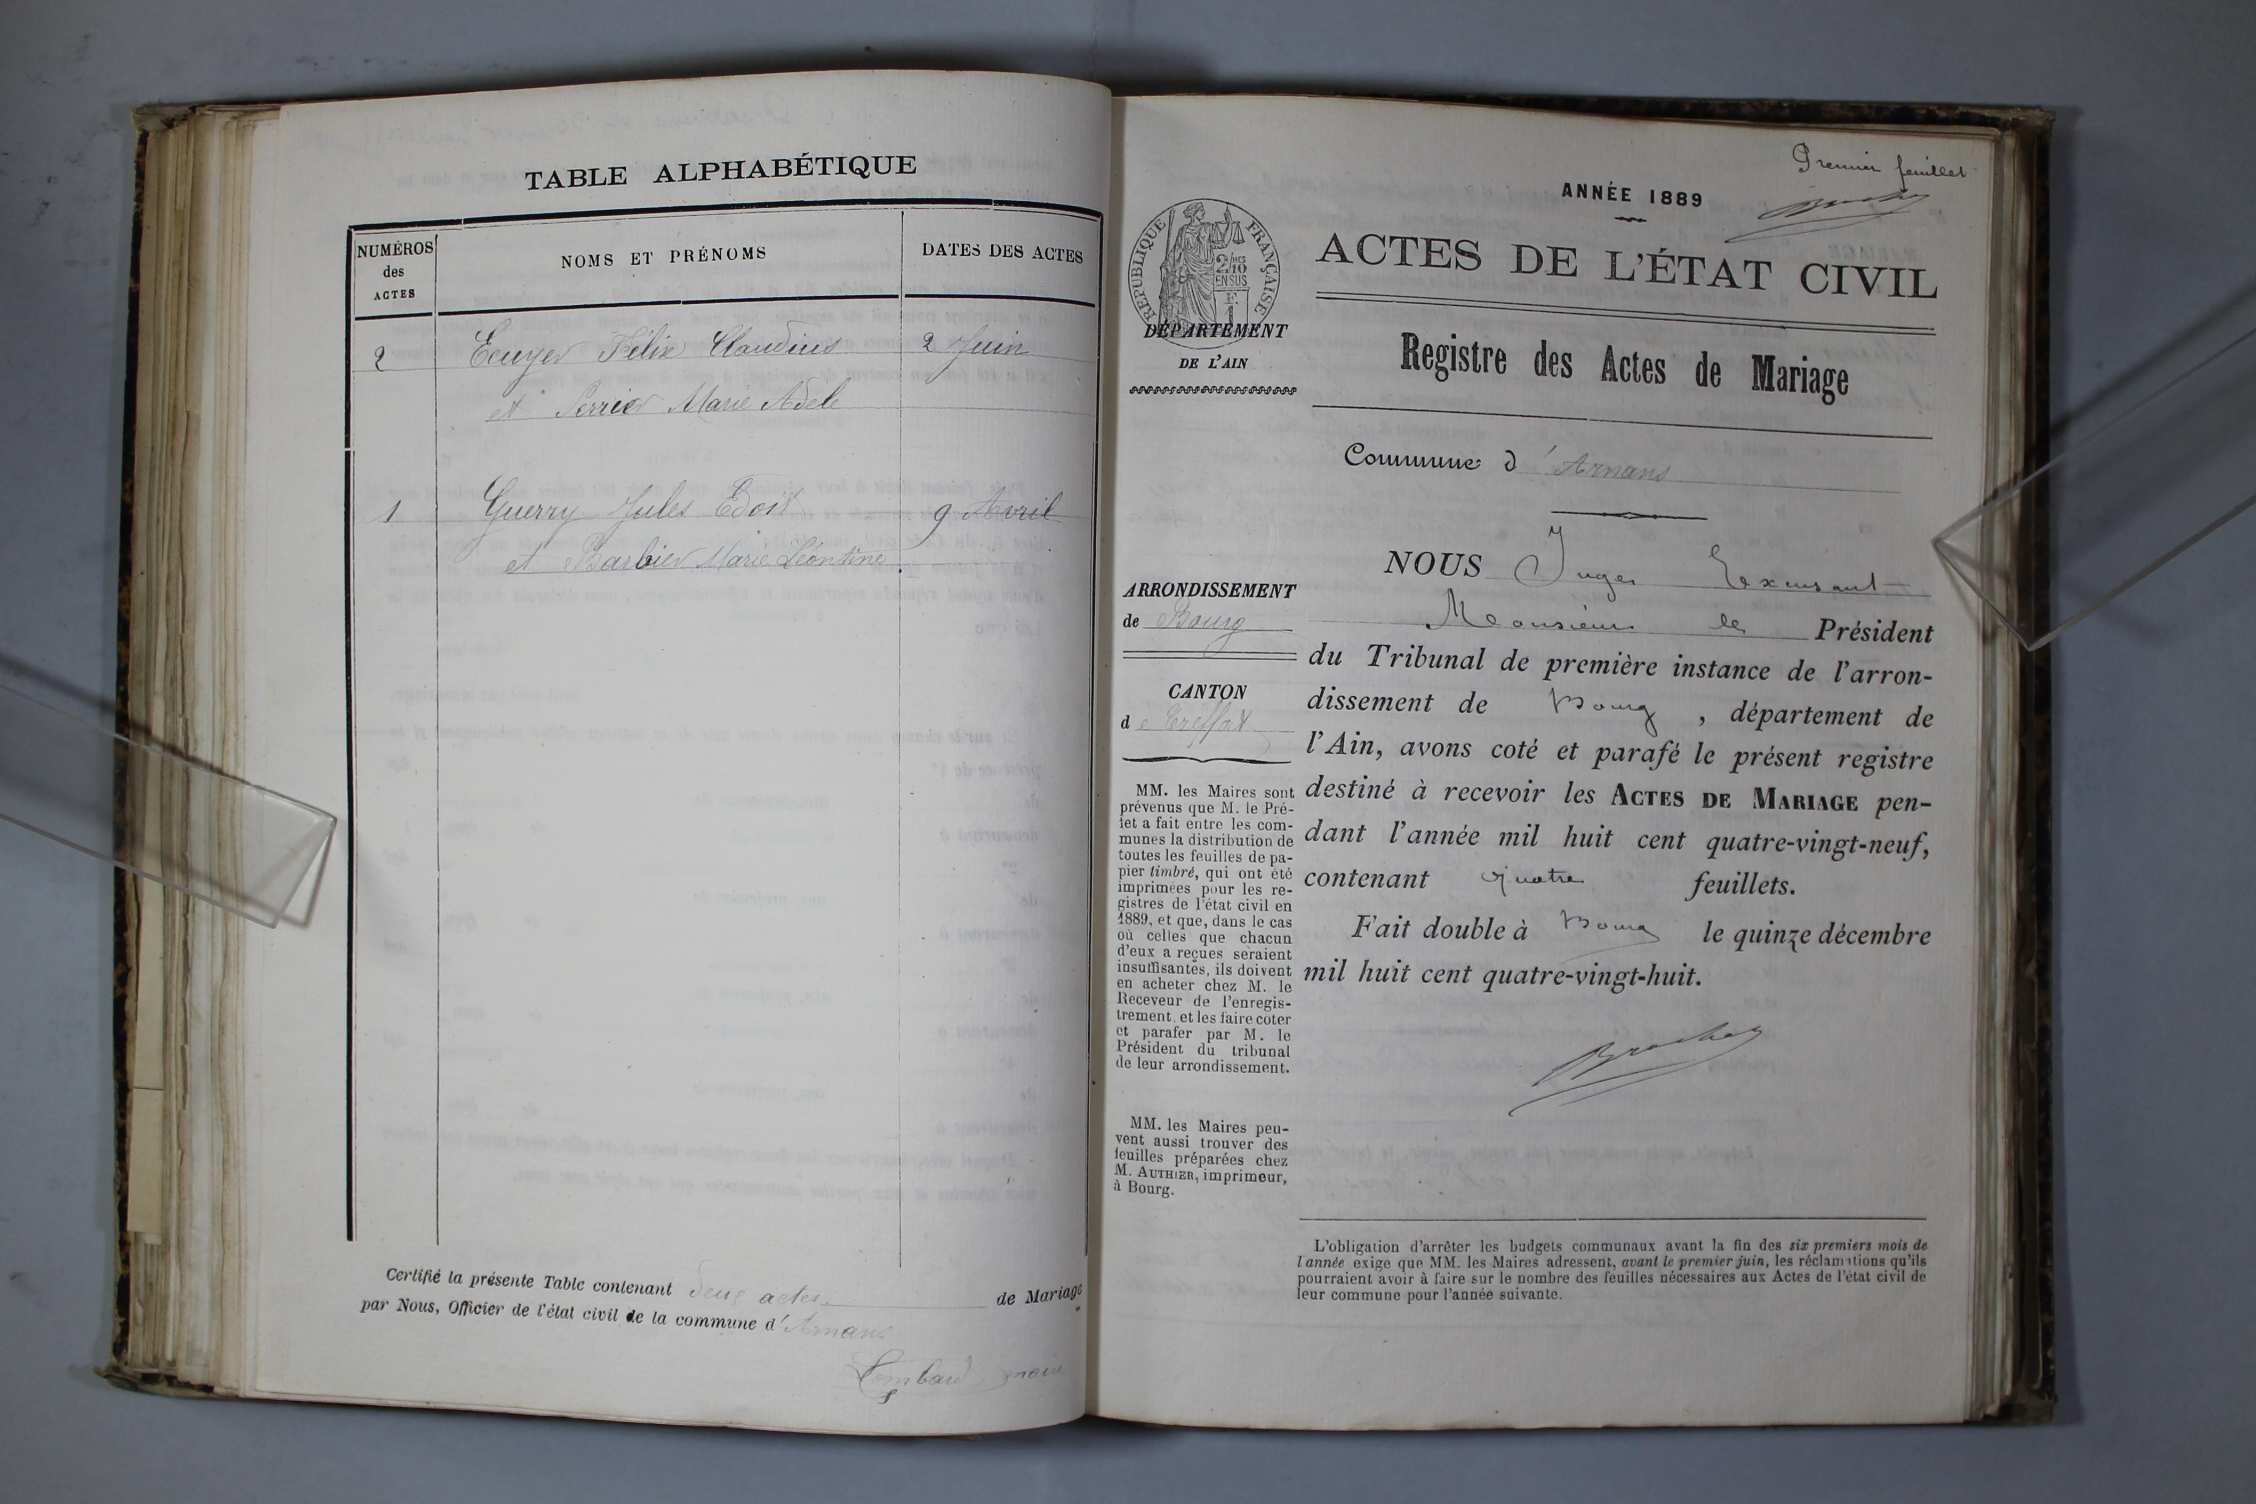 TABLE ALPHABÉTIQUE
NUMÉROS
des
ACTES
NOMS ET PRÉNOMS
DATES DES ACTES
2 Ecuyer Félix Claudius 2 Juin
et Perrier Marie Adele
1 Guerry Jules 9 Avril
et Barbier Marie Léontine
Certifié la présente Table contenant deux actes de Mariage
par Nous, Officier de l'état civil de la commune d'Arnans
Lombard maire
Premier feuillet
ANNÉE 1889
RÉPUBLIQUE FRANÇAISE
2/10
EN SUS
ACTES DE L'ÉTAT CIVIL
DÉPARTEMENT
DE L'AIN
Registre des Actes de Mariage
Commune d'Arnans
ARRONDISSEMENT
de Bourg
CANTON
de Treffort
MM. les Maires sont
prévenus que M. le Pré-
fet a fait entre les com-
munes la distribution de
toutes les feuilles de pa-
pier timbré, qui ont été
imprimées pour les re-
gistres de l'état civil en
1889, et que, dans le cas
où celles que chacun
d'eux a reçues seraient
insuffisantes, ils doivent
en acheter chez M. le
Receveur de l'enregis-
trement et les faire coter
et parafer par M. le
Président du tribunal
de leur arrondissement.
MM. les Maires peu-
vent aussi trouver des
feuilles préparées chez
M. AUTHIER, imprimeur,
à Bourg.
NOUS Juge
Monsieur le Président
du Tribunal de première instance de l'arron-
dissement de Bourg, département de
l'Ain, avons coté et parafé le présent registre
destiné à recevoir les ACTES DE MARIAGE pen-
dant l'année mil huit cent quatre-vingt-neuf,
contenant quatre feuillets.
Fait double à Bourg le quinze décembre
mil huit cent quatre-vingt-huit.
L'obligation d'arrêter les budgets communaux avant la fin des six premiers mois de
l'année exige que MM. les Maires adressent, avant le premier juin, les réclamations qu'ils
pourraient avoir à faire sur le nombre des feuilles nécessaires aux Actes de l'état civil de
leur commune pour l'année suivante.